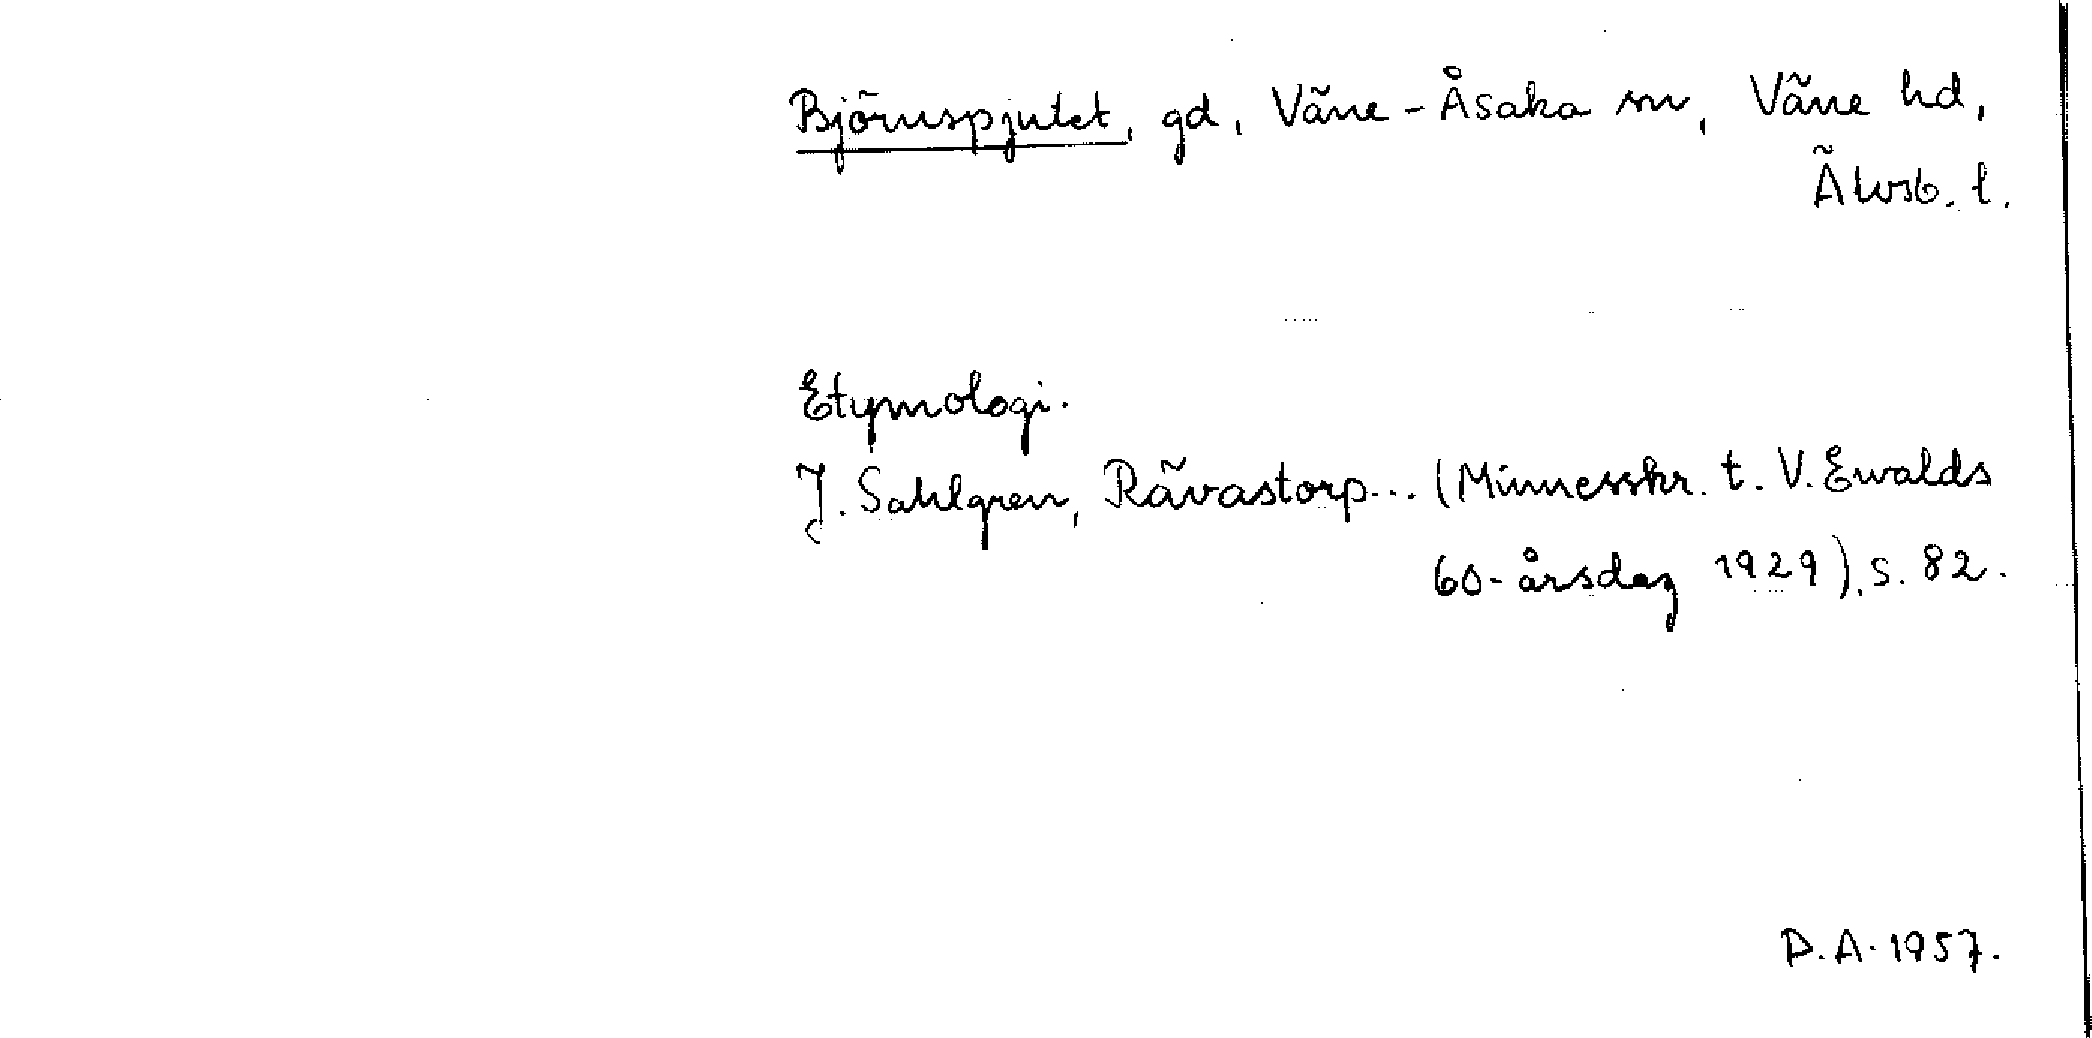 Björnspjutet, gd, Väne-Åsaka sn, Väne hd,
Älvsb. l.
Etymologi.
J. Sahlgren, Rävastorp... (Minnesskr. t. V. Ewalds
60-årsdag 1929), s. 82.
D.A. 1957.